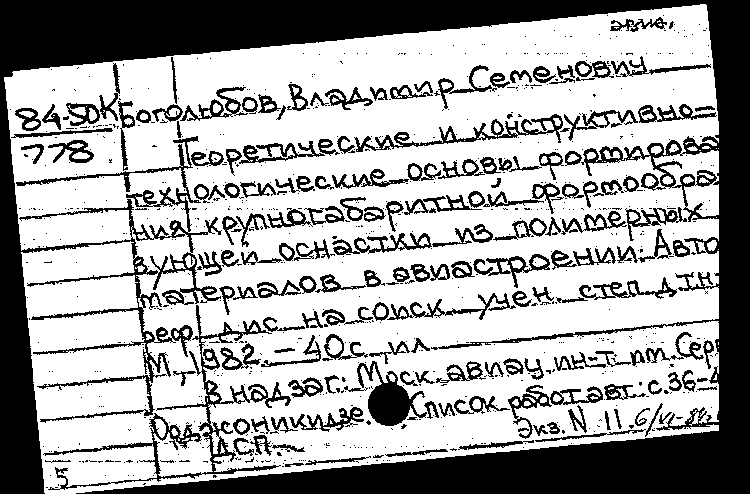 авиа.
84-50К Боголюбов, Владимир Семенович
778
Теоретические и конструктивно=
технологические основы формирова
ния крупногабаритной формообра
зующей оснастки из полимерных
материалов в авиастроении: Авто
реф. дис. на соиск. учен. степ. д.т.н.
М., 1982. – 40 с., ил.
В надзаг.: Моск. авиац. ин-т им. Серг
Орджоникидзе. Список работ авт.: с. 36-4
Д.С.П. Экз. N 11
5